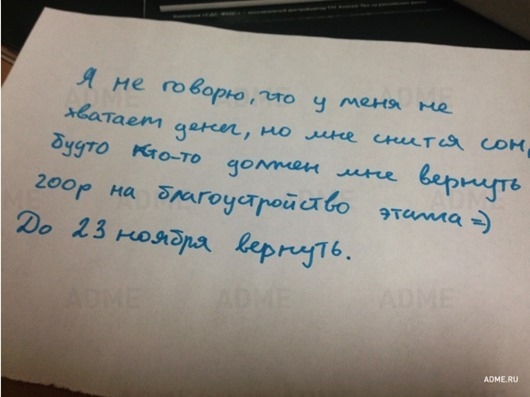 Я не говорю, что у меня не
хватает денег, но мне снится сон,
будто кто-то должен мне вернуть
200р на благоустройство этажа =)
До 23 ноября вернуть.
ADME
ADME
ADME
ADME
ADME
ADME.RU